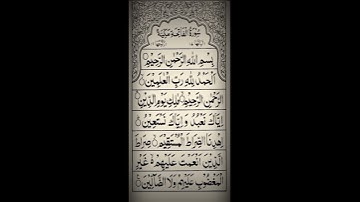 سُورَةُ الْفَاتِحَةِ مَكِّيَّةٌ
بِسْمِ اللهِ الرَّحْمٰنِ الرَّحِيْمِ
اَلْحَمْدُ لِلّٰهِ رَبِّ الْعٰلَمِيْنَ
الرَّحْمٰنِ الرَّحِيْمِ مٰلِكِ يَوْمِ الدِّيْنِ
اِيَّاكَ نَعْبُدُ وَ اِيَّاكَ نَسْتَعِيْنُ
اِهْدِنَا الصِّرَاطَ الْمُسْتَقِيْمَ صِرَاطَ
الَّذِيْنَ اَنْعَمْتَ عَلَيْهِمْ غَيْرِ
الْمَغْضُوْبِ عَلَيْهِمْ وَلَا الضَّآلِّيْنَ